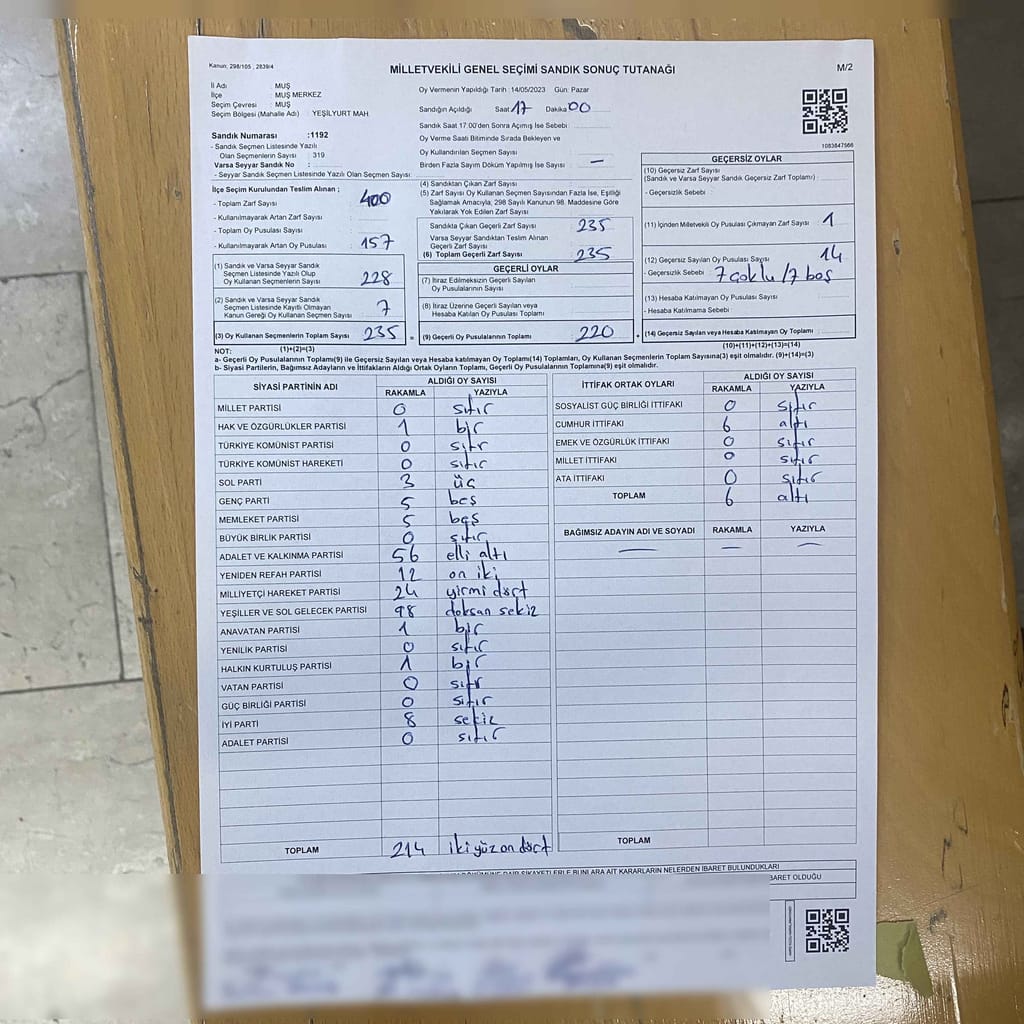 Kanun: 298/105 , 2839/4
MİLLETVEKİLİ GENEL SEÇİMİ SANDIK SONUÇ TUTANAĞI
M/2
İl Adı : MUŞ
İlçe : MUŞ MERKEZ
Seçim Çevresi : MUŞ
Seçim Bölgesi (Mahalle Adı) : YEŞİLYURT MAH.
Sandık Numarası :1192
- Sandık Seçmen Listesinde Yazılı
Olan Seçmenlerin Sayısı : 319
Varsa Seyyar Sandık No :
- Seyyar Sandık Seçmen Listesinde Yazılı Olan Seçmen Sayısı:
Oy Vermenin Yapıldığı Tarih :14/05/2023 Gün: Pazar
Sandığın Açıldığı Saat 17 Dakika 00
Sandık Saat 17:00'den Sonra Açımış İse Sebebi:
Oy Verme Saati Bitiminde Sırada Bekleyen ve
Oy Kullandırılan Seçmen Sayısı :
Birden Fazla Sayım Döküm Yapılmış İse Sayısı : —
1083847566
İlçe Seçim Kurulundan Teslim Alınan ;
- Toplam Zarf Sayısı : 400
- Kullanılmayarak Artan Zarf Sayısı :
- Toplam Oy Pusulası Sayısı :
- Kullanılmayarak Artan Oy Pusulası : 157
(1) Sandık ve Varsa Seyyar Sandık
Seçmen Listesinde Yazılı Olup
Oy Kullanan Seçmenlerin Sayısı : 228
(2) Sandık ve Varsa Seyyar Sandık
Seçmen Listesinde Kayıtlı Olmayan
Kanun Gereği Oy Kullanan Seçmen Sayısı : 7
(3) Oy Kullanan Seçmenlerin Toplam Sayısı : 235
(1)+(2)=(3)
(4) Sandıktan Çıkan Zarf Sayısı :
(5) Zarf Sayısı Oy Kullanan Seçmen Sayısından Fazla İse, Eşitliği
Sağlamak Amacıyla, 298 Sayılı Kanunun 98. Maddesine Göre
Yakılarak Yok Edilen Zarf Sayısı :
Sandıkla Çıkan Geçerli Zarf Sayısı : 235
Varsa Seyyar Sandıktan Teslim Alınan
Geçerli Zarf Sayısı :
(6) Toplam Geçerli Zarf Sayısı : 235
GEÇERLİ OYLAR
(7) İtiraz Edilmeksizin Geçerli Sayılan
Oy Pusulalarının Sayısı :
(8) İtiraz Üzerine Geçerli Sayılan veya
Hesaba Katılan Oy Pusulası Toplamı :
= (9) Geçerli Oy Pusulalarının Toplamı : 220
GEÇERSİZ OYLAR
(10) Geçersiz Zarf Sayısı
(Sandık ve Varsa Seyyar Sandık Geçersiz Zarf Toplamı) :
- Geçersizlik Sebebi :
(11) İçinden Milletvekili Oy Pusulası Çıkmayan Zarf Sayısı : 1
(12) Geçersiz Sayılan Oy Pusulası Sayısı : 14
- Geçersizlik Sebebi : 7 çoklu / 7 boş
(13) Hesaba Katılmayan Oy Pusulası Sayısı :
- Hesaba Katılmama Sebebi :
+ (14) Geçersiz Sayılan veya Hesaba Katılmayan Oy Toplamı :
(10)+(11)+(12)+(13)=(14)
NOT:
a- Geçerli Oy Pusulalarının Toplamı(9) ile Geçersiz Sayılan veya Hesaba katılmayan Oy Toplamı(14) Toplamları, Oy Kullanan Seçmenlerin Toplam Sayısına(3) eşit olmalıdır. (9)+(14)=(3)
b- Siyasi Partilerin, Bağımsız Adayların ve İttifakların Aldığı Ortak Oyların Toplamı, Geçerli Oy Pusulalarının Toplamına(9) eşit olmalıdır.
SİYASİ PARTİNİN ADI ALDIĞI OY SAYISI
RAKAMLA YAZIYLA
MİLLET PARTİSİ 0 sıfır
HAK VE ÖZGÜRLÜKLER PARTİSİ 1 bir
TÜRKİYE KOMÜNİST PARTİSİ 0 sıfır
TÜRKİYE KOMÜNİST HAREKETİ 0 sıfır
SOL PARTİ 3 üç
GENÇ PARTİ 5 beş
MEMLEKET PARTİSİ 5 beş
BÜYÜK BİRLİK PARTİSİ 0 sıfır
ADALET VE KALKINMA PARTİSİ 56 elli altı
YENİDEN REFAH PARTİSİ 12 on iki
MİLLİYETÇİ HAREKET PARTİSİ 24 yirmi dört
YEŞİLLER VE SOL GELECEK PARTİSİ 98 doksan sekiz
ANAVATAN PARTİSİ 1 bir
YENİLİK PARTİSİ 0 sıfır
HALKIN KURTULUŞ PARTİSİ 1 bir
VATAN PARTİSİ 0 sıfır
GÜÇ BİRLİĞİ PARTİSİ 0 sıfır
İYİ PARTİ 8 sekiz
ADALET PARTİSİ 0 sıfır
TOPLAM 214 iki yüz on dört
İTTİFAK ORTAK OYLARI ALDIĞI OY SAYISI
RAKAMLA YAZIYLA
SOSYALİST GÜÇ BİRLİĞİ İTTİFAKI 0 sıfır
CUMHUR İTTİFAKI 6 altı
EMEK VE ÖZGÜRLÜK İTTİFAKI 0 sıfır
MİLLET İTTİFAKI 0 sıfır
ATA İTTİFAKI 0 sıfır
TOPLAM 6 altı
BAĞIMSIZ ADAYIN ADI VE SOYADI RAKAMLA YAZIYLA
— — —
TOPLAM
DÖKÜMÜNE DAİR ŞİKAYETLERLE BUNLARA AİT KARARLARIN NELERDEN İBARET BULUNDUKLARI
BARET OLDUĞU